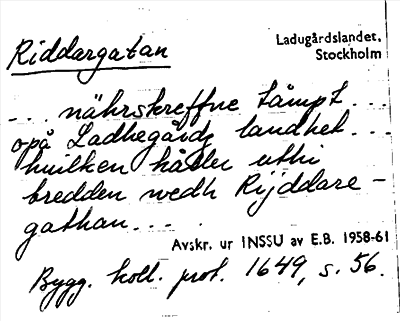 Riddargatan
Ladugårdslandet.
Stockholm
... nährskreffne tåmpt ...
opå Ladhegårdz landhet ...
huilken håller uthi
bredden wedh Rijddare-
gathan ...
Avskr. ur INSSU av E.B. 1958-61
Bygg. koll. prot. 1649, s. 56.